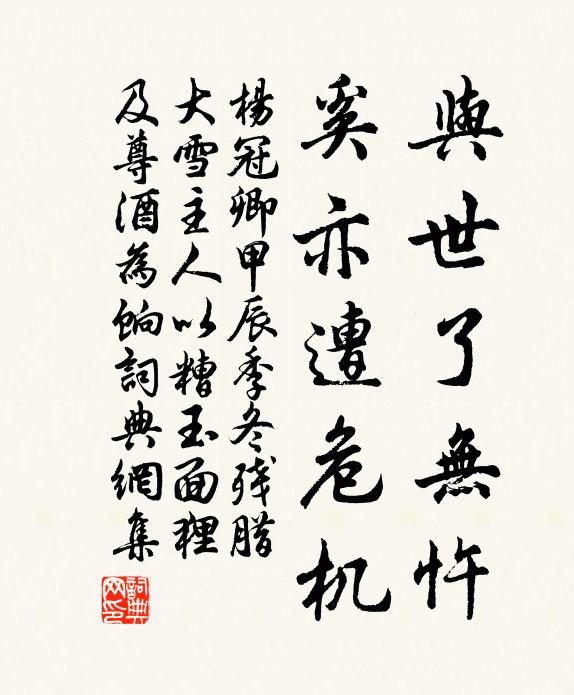 與世了無忤
奚亦遭危机
楊冠卿甲辰季冬残腊
大雪主人以糟玉面狸
及尊酒為餉詞典網集
詞典网印